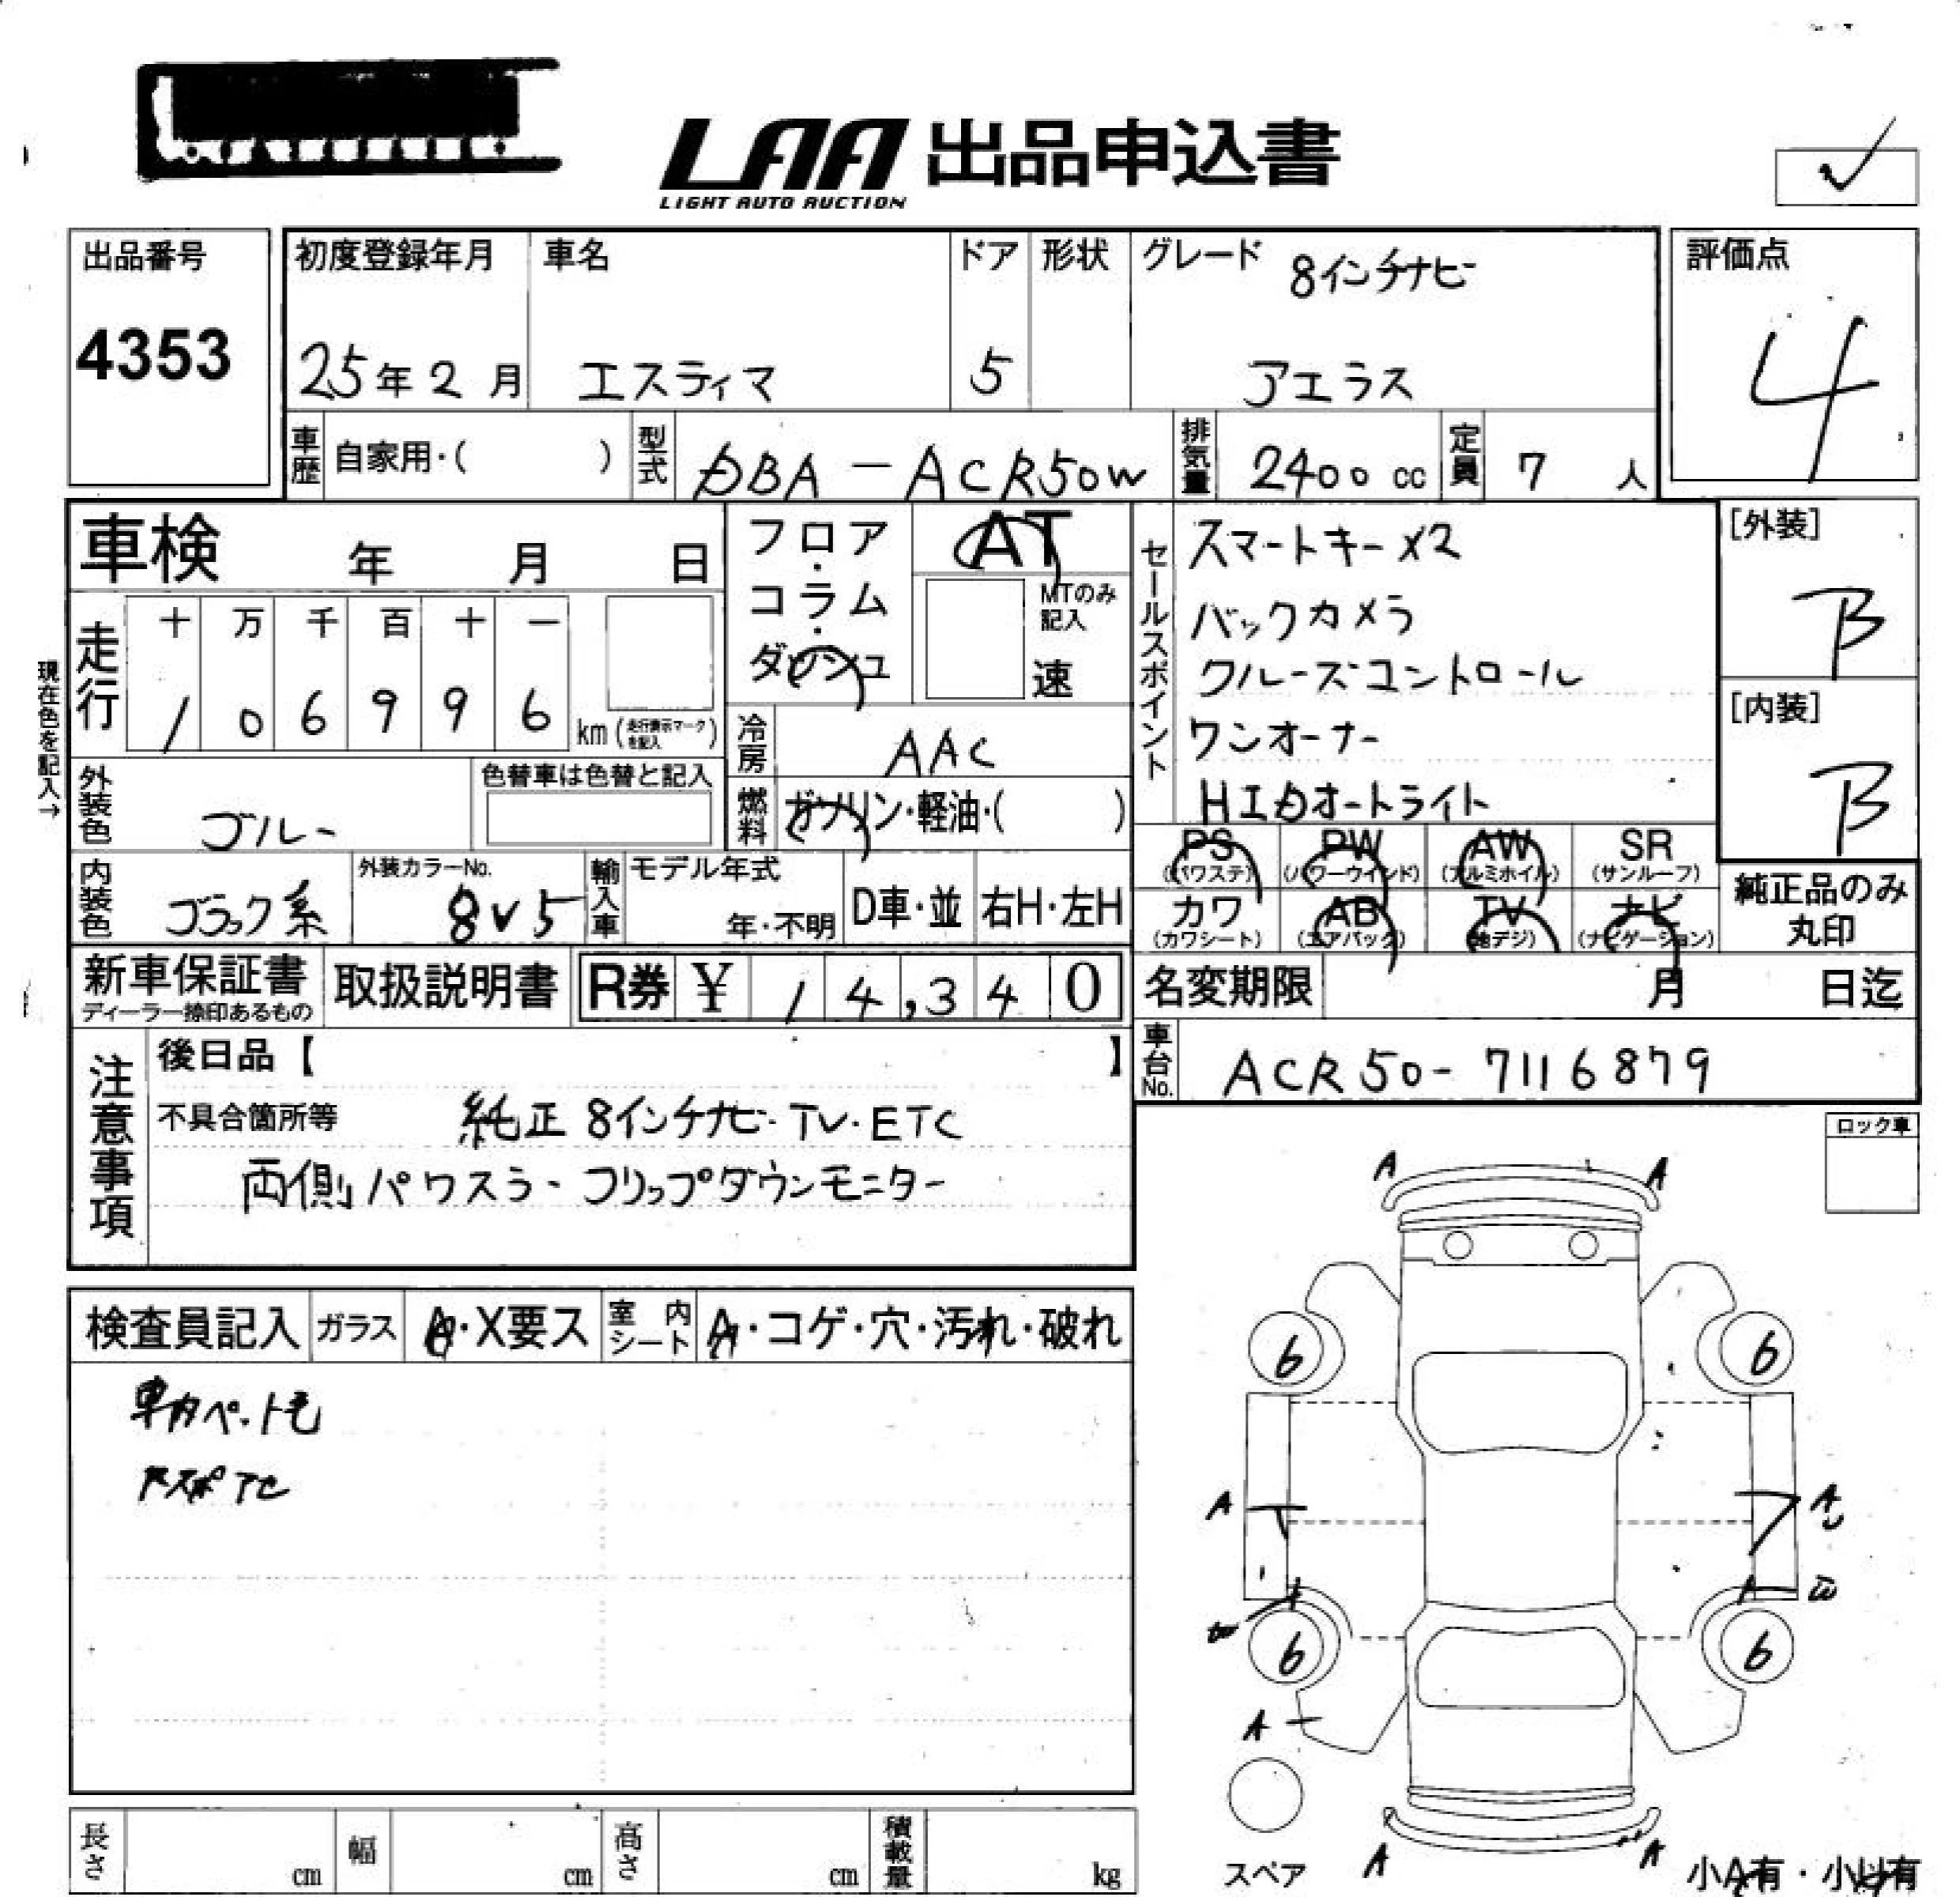 LAA 出品申込書
LIGHT AUTO AUCTION
出品番号
4353
初度登録年月
25年2月
車名
エスティマ
ドア
5
形状
グレード
8インチナビ
アエラス
評価点
4
車歴 自家用・( )
型式 DBA-ACR50W
排気量 2400 cc
定員 7 人
車検 年 月 日
現在色を記入→
走行
十 万 千 百 十 一
1 0 6 9 9 6
km (走行表示マークを記入)
フロア・コラム・ダッシュ
AT
MTのみ記入
速
冷房 AAC
燃料 ガソリン・軽油・( )
外装色 ブルー
色替車は色替と記入
内装色 ブラック系
外装カラーNo.
8V5
輸入車 モデル年式
年・不明
D車・並
右H・左H
セールスポイント
スマートキーX2
バックカメラ
クルーズコントロール
ワンオーナー
HIDオートライト
[外装]
B
[内装]
B
PS (パワステ)
PW (パワーウインド)
AW (アルミホイル)
SR (サンルーフ)
カワ (カワシート)
AB (エアバック)
TV (地デジ)
ナビ (ナビゲーション)
純正品のみ丸印
新車保証書
ディーラー捺印あるもの
取扱説明書
R券 ¥ 14,340
名変期限 月 日迄
車台No. ACR50-7116879
注意事項
後日品【 】
不具合箇所等
純正 8インチナビ・TV・ETC
両側パワスラ・フリップダウンモニター
ロック車
検査員記入
ガラス A・X要ス
室内シート A・コゲ・穴・汚れ・破れ
車内ペット毛
A A
6 6
A A
W
6 6
A
A A
スペア
小A有・小U有
長さ cm
幅 cm
高さ cm
積載量 kg